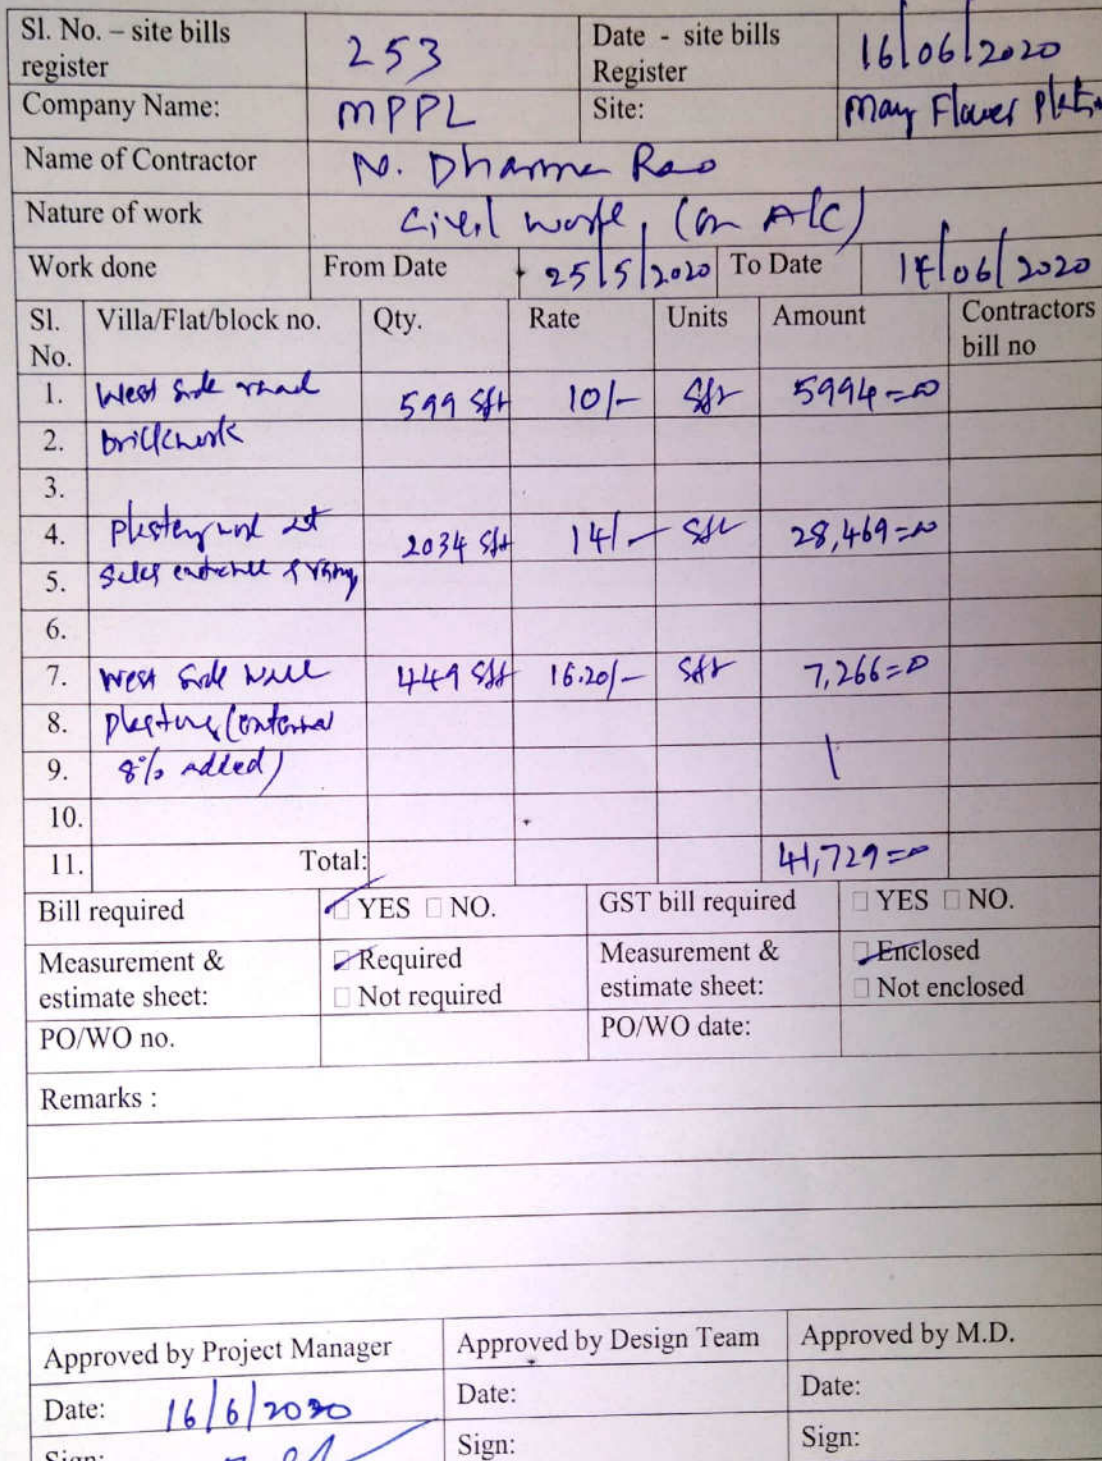 Sl. No. – site bills register 253 Date - site bills Register 16/06/2020
Company Name: MPPL Site: May Flower
Name of Contractor N. Dharma Rao
Nature of work Civil work, (on A/C)
Work done From Date 25/5/2020 To Date 14/06/2020
Sl. No. Villa/Flat/block no. Qty. Rate Units Amount Contractors bill no
1. West side road 599 Sft 10/- Sft 5994=00
2. brickwork
3.
4. plastery work at 2034 Sft 14/- Sft 28,469=00
5. sales entrance & ramp
6.
7. West side wall 449 Sft 16.20/- Sft 7,266=0
8. plastring (external
9. 8% added)
10.
11. Total: 41,729=00
Bill required YES NO. GST bill required YES NO.
Measurement & estimate sheet: Required Not required Measurement & estimate sheet: Enclosed Not enclosed
PO/WO no. PO/WO date:
Remarks :
Approved by Project Manager Approved by Design Team Approved by M.D.
Date: 16/6/2020 Date: Date:
Sign: Sign: Sign: